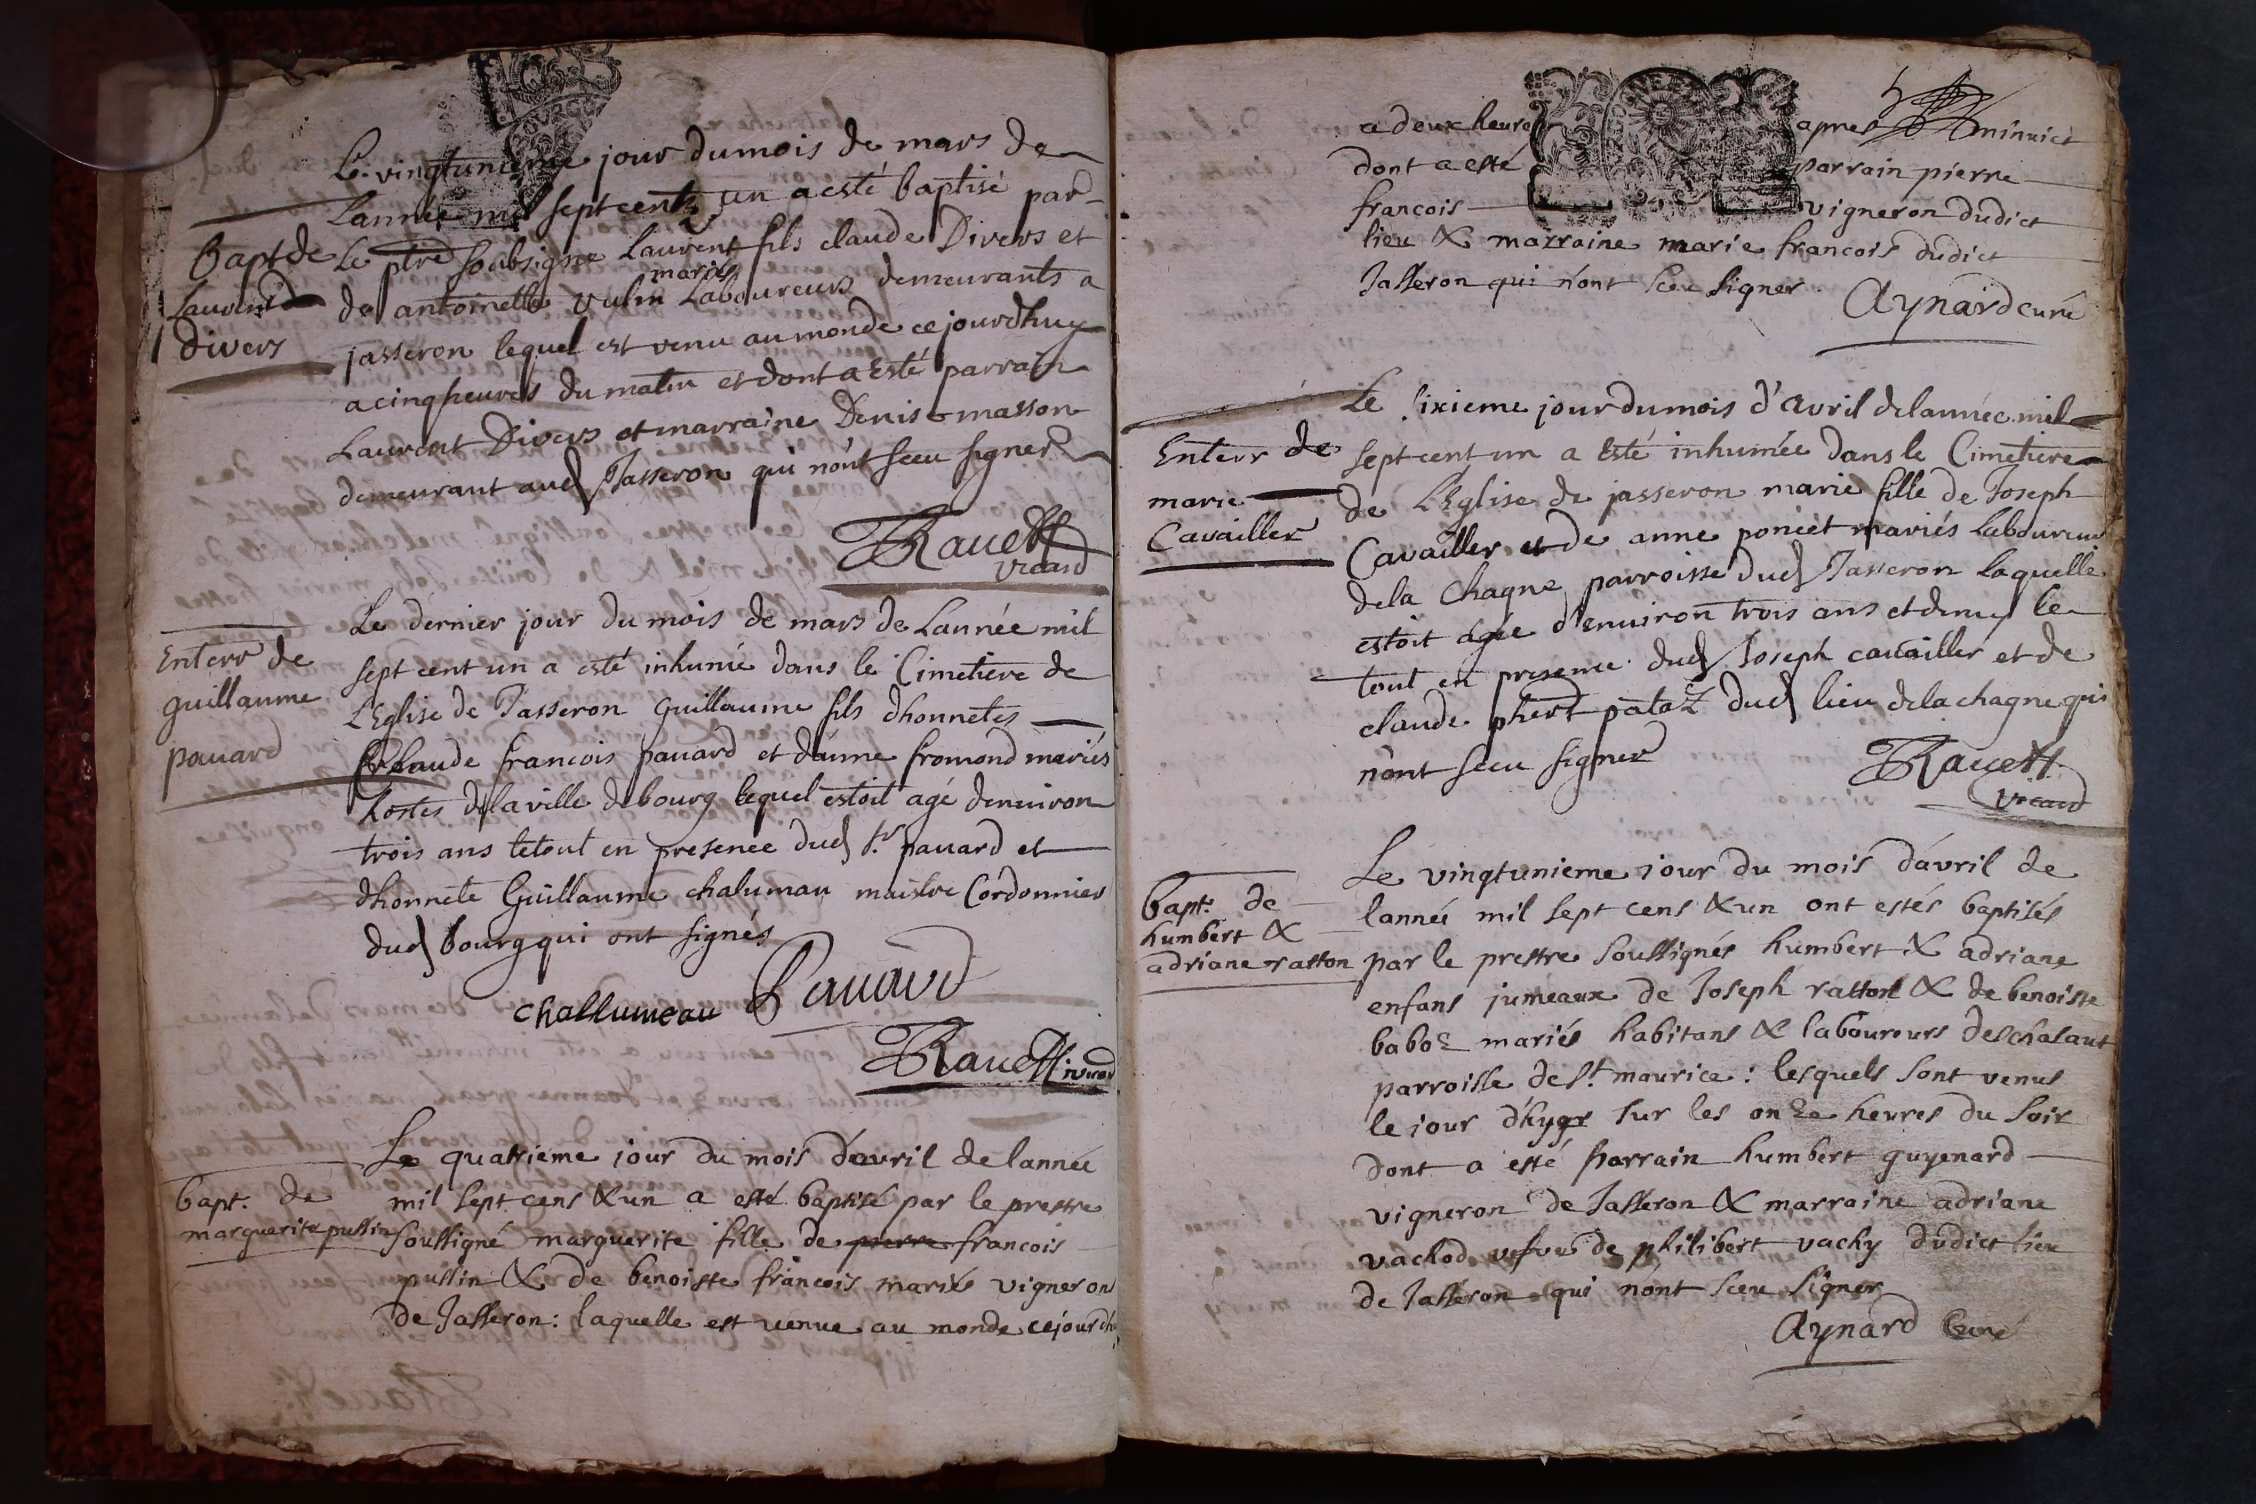 Le vingtunieme jour du mois de mars de
Lannée mil sept cents un a esté baptisé par
Bapt de
Laurent
divers
Le ptre soubsigne Laurent fils claude Divers et
mariés
de antoinette vulin Laboureurs demeurants a
jasseron lequel est venu au monde ce jourdhuy
a cinq heures du matin et dont a Esté parrain
Laurent Divers et marraine Denise masson
demeurant aud Jasseron qui n'ont sceu signer
Ravett
vicard
Enterr de
guillaume
pavard
Le dernier jour du mois de mars de Lannée mil
sept cent un a esté inhumé dans le Cimetiere de
LEglise de Jasseron Guillaume fils dhonnetes
Claude francois pavard et danne fromond mariés
hostes de la ville de bourg lequel estoit agé denuiron
trois ans le tout en presence dud Sr. pavard et
dhonnete Guillaume chalumau maistre Cordonnier
dud bourg qui ont signés
challumeau Pavard
Ravett vicard
bapt. de
marguerite pussin
Le quatrieme jour du mois d'avril de lannée
mil sept cens & un a esté baptisé par le prestre
soussigné marguerite fille de pierre francois
pussin & de benoiste francois mariés vigneron
de Jasseron: laquelle est venue au monde cejourdh
a deux heures apres minuict
dont a esté parrain pierre
francois vigneron dudict
lieu & marraine marie francois dudict
Jasseron qui n'ont sceu signer
Aynard curé
Enterr de
marie
Cavailler
Le sixieme jour du mois d'Avril de lannée mil
sept cent un a Esté inhumée dans le Cimetiere
de LEglise de jasseron marie fille de Joseph
Cavailler et de anne poncet mariés Laboureurs
de la Chagne parroisse dud Jasseron laquelle
estoit agée d'enuiron trois ans et demy le
tout en presence dud Joseph cavailler et de
claude phert pataz dud lieu de la chagne qui
n'ont sceu signer
Ravett
vicard
bapt. de
humbert &
adriane ratton
Le vingtunieme jour du mois d'avril de
lannée mil sept cens & un ont estés baptisés
par le prestre soussigné humbert & adriane
enfans jumeaux de Joseph ratton & de benoiste
baboz mariés habitans & laboureurs deschalaut
parroisse de St. maurice: lesquels sont venus
le jour d'hyer sur les onze heures du soir
dont a esté parrain humbert guyenard
vigneron de Jasseron & marraine adriane
vachod vefve de philibert vachy dudict lieu
de Jasseron qui n'ont sceu signer
Aynard Curé